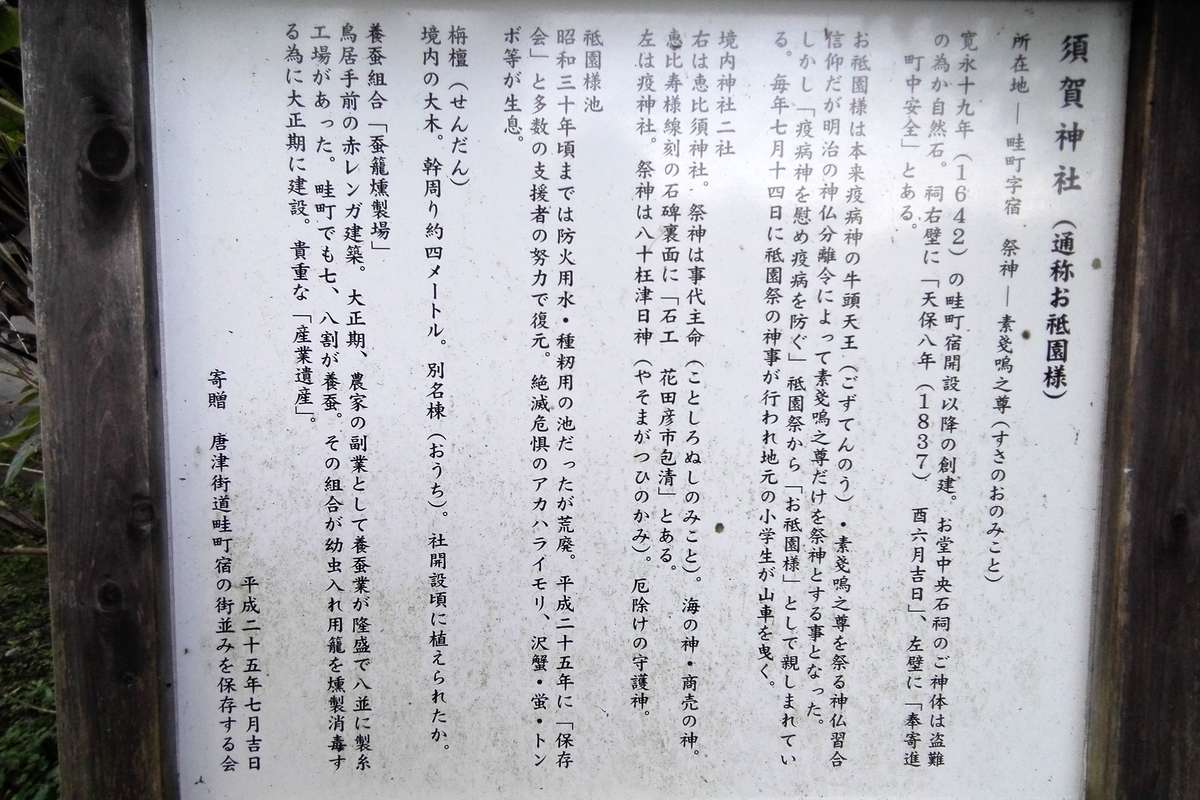 須賀神社（通称お祗園様）
所在地―畦町字宿　祭神―素戔嗚之尊（すさのおのみこと）
寛永十九年（1642）の畦町宿開設以降の創建。お堂中央石祠のご神体は盗難
の為か自然石。祠右壁に「天保八年（1837）酉六月吉日」、左壁に「奉寄進
町中安全」とある。
お祗園様は本来疫病神の牛頭天王（ごずてんのう）・素戔嗚之尊を祭る神仏習合
信仰だが明治の神仏分離令によって素戔嗚之尊だけを祭神とする事となった。
しかし「疫病神を慰め疫病を防ぐ」祗園祭から「お祗園様」として親しまれてい
る。毎年七月十四日に祗園祭の神事が行われ地元の小学生が山車を曳く。
境内神社二社
右は恵比須神社。祭神は事代主命（ことしろぬしのみこと）。海の神・商売の神。
恵比寿様線刻の石碑裏面に「石工　花田彦市包清」とある。
左は疫神社。祭神は八十枉津日神（やそまがつひのかみ）。厄除けの守護神。
祗園様池
昭和三十年頃までは防火用水・種籾用の池だったが荒廃。平成二十五年に「保存
会」と多数の支援者の努力で復元。絶滅危惧のアカハライモリ、沢蟹・蛍・トン
ボ等が生息。
栴檀（せんだん）
境内の大木。幹周り約四メートル。別名楝（おうち）。社開設頃に植えられたか。
養蚕組合「蚕籠燻製場」
鳥居手前の赤レンガ建築。大正期、農家の副業として養蚕業が隆盛で八並に製糸
工場があった。畦町でも七、八割が養蚕。その組合が幼虫入れ用籠を燻製消毒す
る為に大正期に建設。貴重な「産業遺産」。
平成二十五年七月吉日
寄贈　唐津街道畦町宿の街並みを保存する会